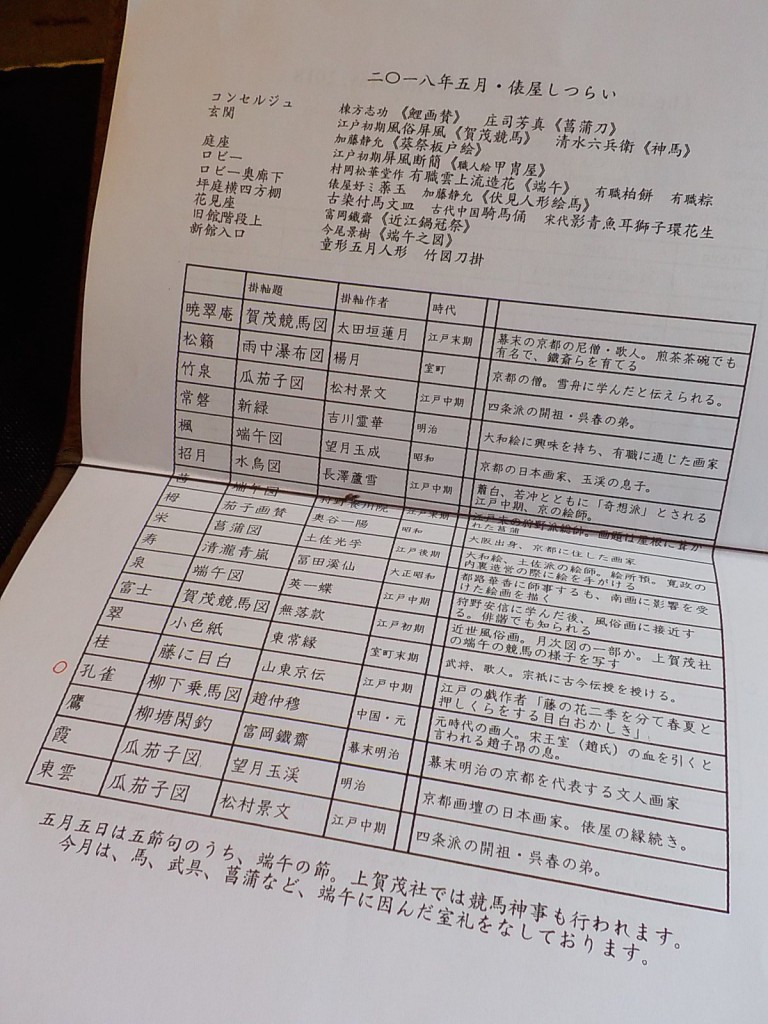 二〇一八年五月・俵屋しつらい
コンセルジュ 棟方志功《鯉画賛》 庄司芳真《菖蒲刀》
玄関 江戸初期風俗屏風《賀茂競馬》 清水六兵衛《神馬》
加藤静允《葵祭板戸絵》
庭座 江戸初期屏風断簡《職人絵甲冑屋》
ロビー 村岡松華堂作 有職雲上流造花《端午》 有職柏餅 有職粽
ロビー奥廊下 俵屋好ミ薬玉 加藤静允《伏見人形絵馬》
坪庭横四方棚 古染付馬文皿 古代中国騎馬俑 宋代影青魚耳獅子環花生
花見座 富岡鐵齋《近江鍋冠祭》
旧館階段上 今尾景樹《端午之図》
新館入口 童形五月人形 竹図刀掛
掛軸題 掛軸作者 時代
暁翠庵 賀茂競馬図 太田垣蓮月 江戸末期 幕末の京都の尼僧・歌人。煎茶茶碗でも
有名で、鐵斎らを育てる
松籟 雨中瀑布図 楊月 室町 京都の僧。雪舟に学んだと伝えられる。
竹泉 瓜茄子図 松村景文 江戸中期 四条派の開祖・呉春の弟。
常磐 新緑 吉川霊華 明治 大和絵に興味を持ち、有職に通じた画家
楓 端午図 望月玉成 昭和 京都の日本画家、玉渓の息子。
招月 水鳥図 長澤蘆雪 江戸中期 蕭白、若冲とともに「奇想派」とされる
江戸中期、京の絵師。
端午図 江戸末期 江戸末の狩野派絵師。画題は屋根に葺か
れた菖蒲
栂 茄子画賛 奥谷一陽 昭和 大阪出身、京都に住した画家
栄 菖蒲図 土佐光孚 江戸後期 大和絵、土佐派の絵師。絵所預。寛政の
内裏造営の際に絵を手がける
寿 清瀧青嵐 冨田溪仙 大正昭和 都路華香に師事するも、南画に影響を受
けた絵画を描く
泉 端午図 英一蝶 江戸中期 狩野安信に学んだ後、風俗画に接近す
る。俳諧でも知られる
富士 賀茂競馬図 無落款 江戸初期 近世風俗画。月次図の一部か。上賀茂社
の端午の競馬の様子を写す
翠 小色紙 東常縁 室町末期 武将、歌人。宗祇に古今伝授を授ける。
桂 藤に目白 山東京伝 江戸中期 江戸の戯作者「藤の花二季を分て春夏と
押しくらをする目白おかしき」
孔雀 柳下乗馬図 趙仲穆 中国・元 元時代の画人。宋王室（趙氏）の血を引くと
言われる趙子昂の息。
鷹 柳塘閑釣 富岡鐵齋 幕末明治 幕末明治の京都を代表する文人画家
霞 瓜茄子図 望月玉渓 明治 京都画壇の日本画家。俵屋の縁続き。
東雲 瓜茄子図 松村景文 江戸中期 四条派の開祖・呉春の弟。
五月五日は五節句のうち、端午の節。上賀茂社では競馬神事も行われます。
今月は、馬、武具、菖蒲など、端午に因んだ室礼をなしております。